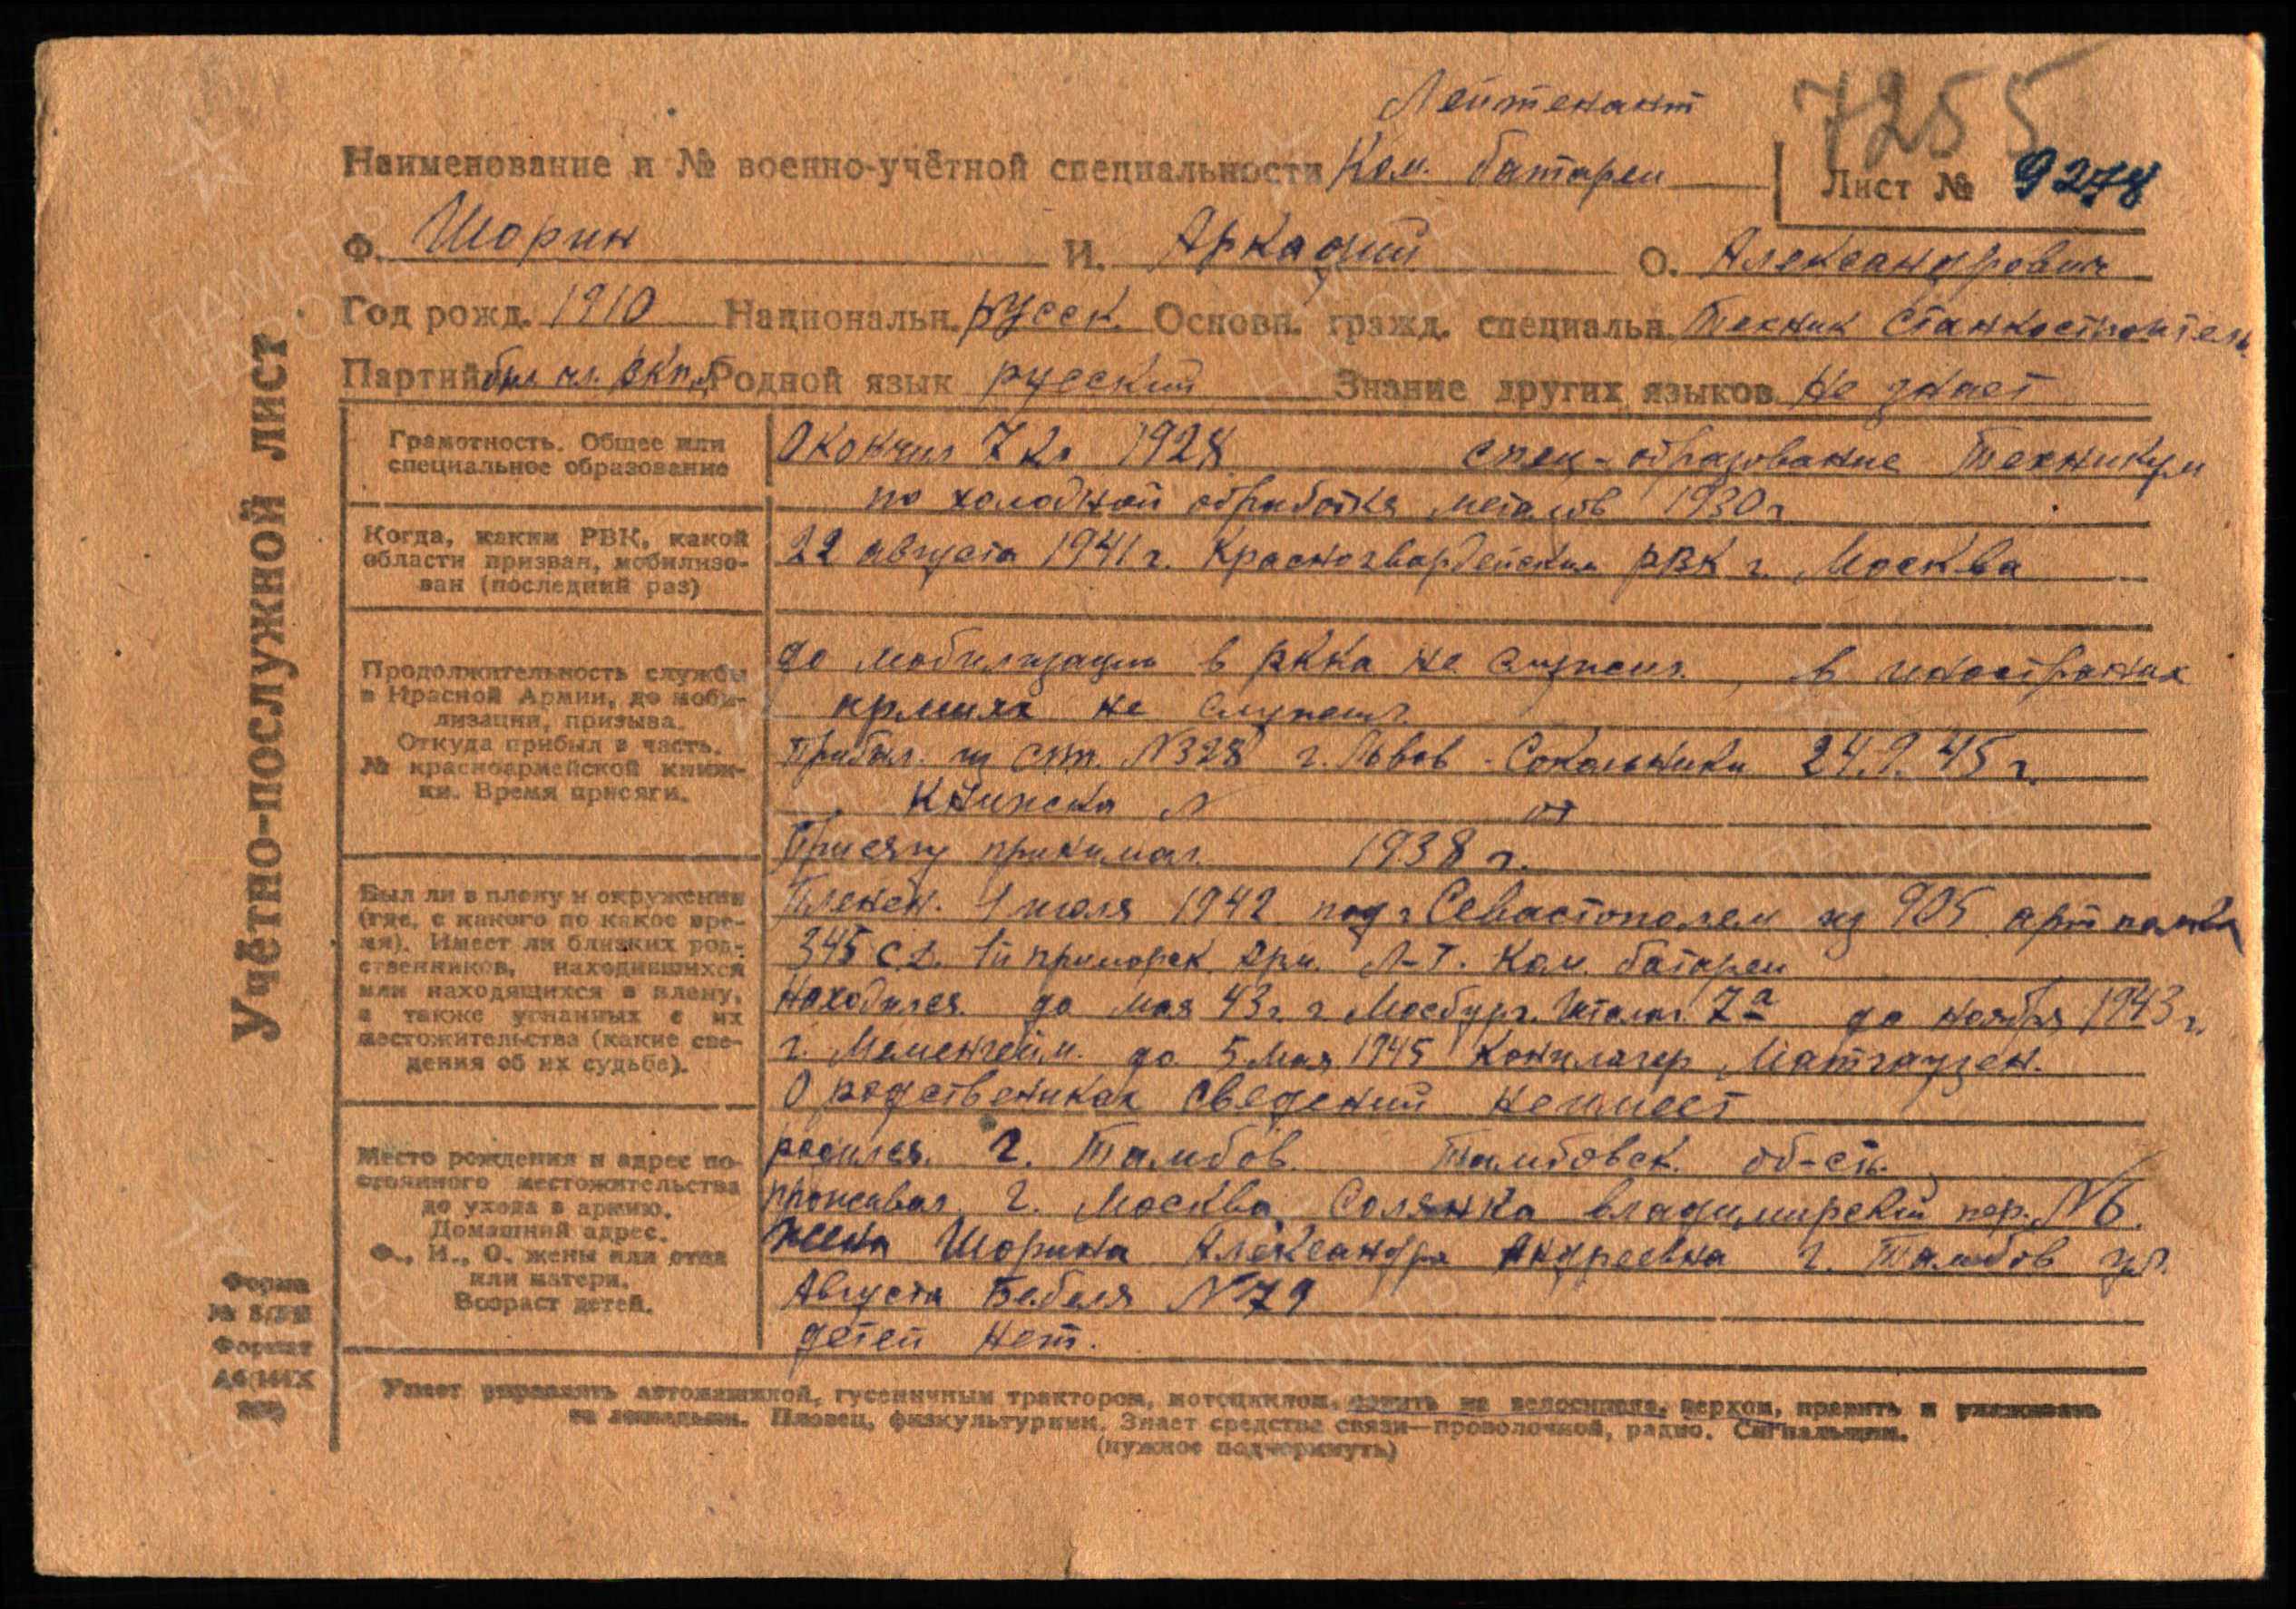 Лейтенант
7255
Наименование и № военно-учётной специальности Ком. батареи
Лист № 9278
Ф. Шорин И. Аркадий О. Александрович
Год рожд. 1910 Национальн. русск. Основн. гражд. специальн. Техник станкостроитель
Партийн был чл. ВКП(б) Родной язык русский Знание других языков не знает
Учётно-послужной лист
Грамотность. Общее или
специальное образование
Окончил 7 кл 1928 спец-образование Техникум
по холодной обработке металов 1930 г.
Когда, каким РВК, какой
области призван, мобилизо-
ван (последний раз)
22 августа 1941 г. Красногвардейским РВК г. Москва
Продолжительность службы
в Красной Армии, до моби-
лизации, призыва.
Откуда прибыл в часть.
№ красноармейской книж-
ки. Время присяги.
до мобилизации в РККА не служил, в иностраних
армиях не служил
Прибыл из СПП. №328 г. Львов - Сокольники 24.9.45 г.
Книжка № от
Присягу принимал 1938 г.
Был ли в плену и окружении
(где, с какого по какое вре-
мя). Имеет ли близких род-
ственников, находившихся
или находящихся в плену,
а также угнанных с их
местожительства (какие све-
дения об их судьбе).
Пленен. 4 июля 1942 под г Севастополем из 905 арт полка
345 с.д. 1й приморск. Арм. Л-т. Ком. батареи
Находился до мая 43 г. г. Мосбург. Шталаг. 7а до ноября 1943 г.
г. Маменгейм. до 5 мая 1945 Концлагер Матгаузен.
О родствениках сведений неимеет
Место рождения и адрес по-
стоянного местожительства
до ухода в армию.
Домашний адрес.
Ф., И., О. жены или отца
или матери.
Возраст детей.
родился. г. Тамбов. Тамбовск. об-сть.
проживал г. Москва Солянка владимирский пер. №6.
жена Шорина Александра Андреевна г. Тамбов ул.
Августа Бебеля №79
детей нет.
Форма
Формат
Умеет управлять автомашиной, гусеничным трактором, мотоциклом, ездить на велосипеде, верхом, править и ухаживать
за лошадьми. Пловец, физкультурник. Знает средства связи—проволочной, радио. Сигнальщик.
(нужное подчеркнуть)
ПАМЯТЬ
НАРОДА